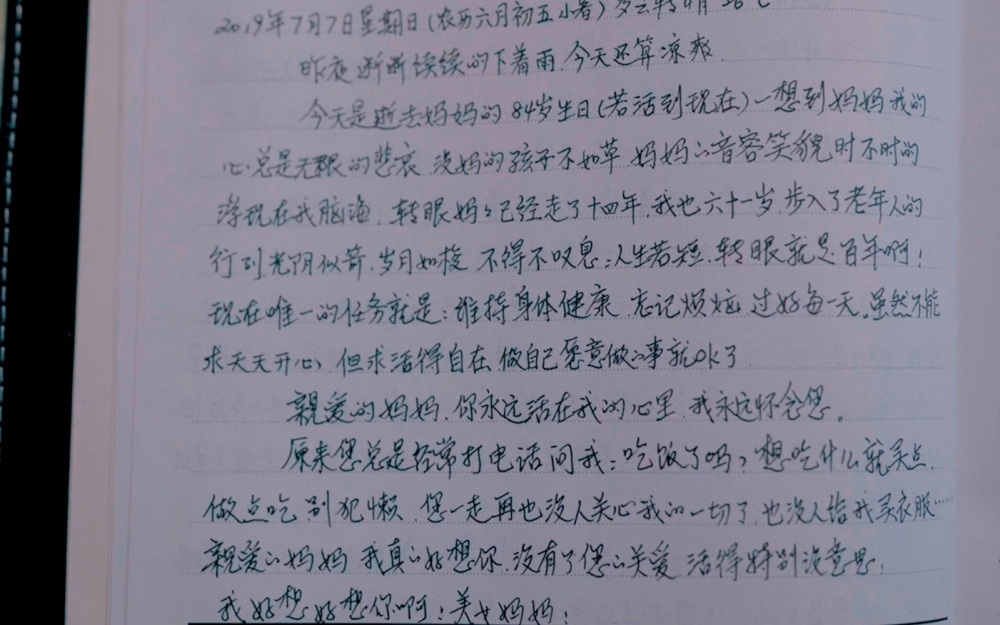 2019年7月7日星期日(农历六月初五小暑)多云转晴 28℃
昨夜断断续续的下着雨.今天还算凉爽.
今天是逝去妈妈的84岁生日(若活到现在)一想到妈妈我的
心总是无限的悲哀.没妈的孩子不如草.妈妈的音容笑貌时不时的
浮现在我脑海.转眼妈妈已经走了十四年,我也六十一岁,步入了老年人的
行列光阴似箭.岁月如梭 不得不叹息:人生若短.转眼就是百年啊!
现在唯一的任务就是:维持身体健康.忘记烦恼.过好每一天。虽然不能
求天天开心.但求活得自在.做自己愿意做的事就OK了.
親爱的妈妈.你永远活在我的心里.我永远怀念您。
原来您总是经常打电话问我:吃饭了吗?想吃什么就买点.
做点吃.别犯懒.您一走再也没人关心我的一切了.也没人给我买衣服……
親爱的妈妈 我真的好想你.没有了您的关爱 活得特别没意思!
我好想好想你啊!美女妈妈!